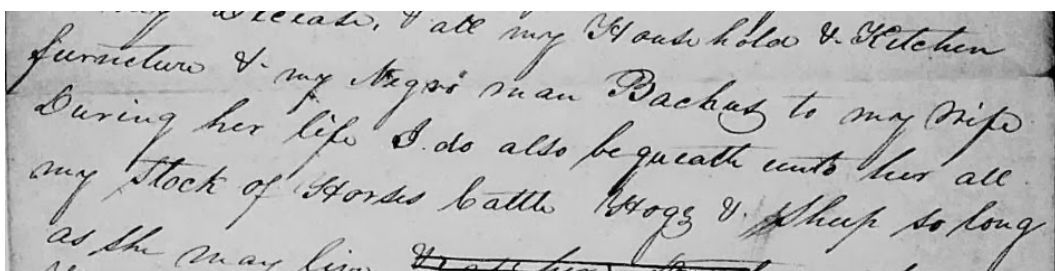 Decease, & all my Household & Kitchen
furneture & my Negro man Bachus to my Wife
During her life I do also bequeath unto her all
my Stock of Horses Cattle Hogg & Sheep so long
as she may live